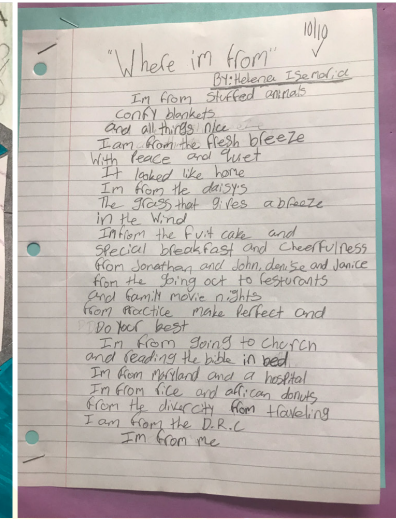 10/10
"Where im from"
By: Helena Isemoria
Im from Stuffed animals
comfy blankets
and all things nice
I am from the fresh breeze
With Peace and quiet
It looked like home
Im from the daisys
The grass that gives a breeze
in the wind
Im from the fruit cake and
special breakfast and cheerfulness
from Jonathan and John, denise and Janice
from the going out to resturants
and family movie nights
from Practice make Perfect and
Do your best
Im from going to church
and reading the bible in bed
Im from Maryland and a hospital
Im from rice and african donuts
from the divercity from traveling
I am from the D.R.C
Im from me